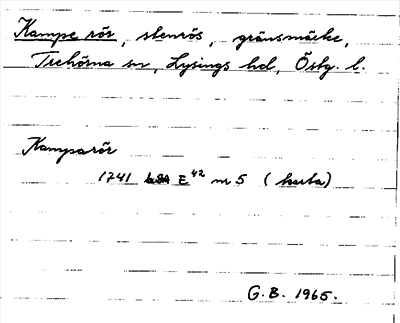 Kampe rör, stenrös, gränsmärke,
Trehörna sn, Lysings hd, Östg. l.
Kamparör
1741 LSA E42 nr 5 (karta)
G.B. 1965.